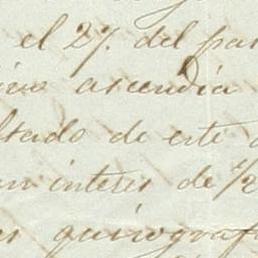 el 27. del pa
ascendia
ltado de este
un interes de 1/2
quirografa